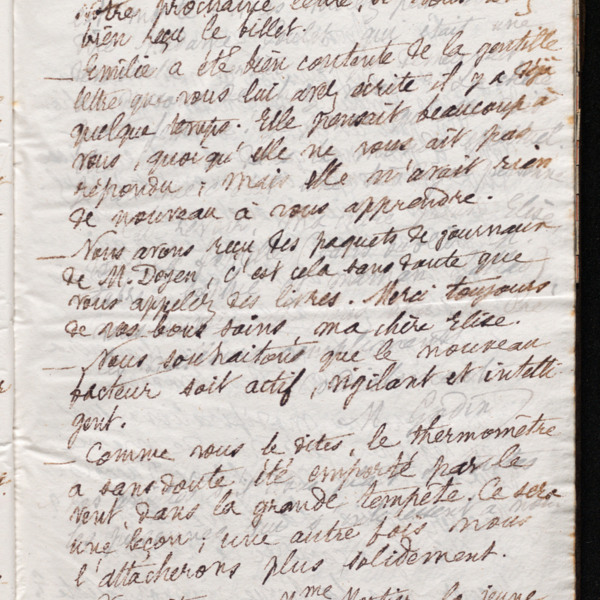 votre prochaine
bien reçu le billet.
— Emilie a été bien contente de la gentille
lettre que vous lui avez écrite il y a déjà
quelque temps. Elle pensait beaucoup à
vous, quoiqu'elle ne vous ait pas
répondu ; mais elle n'avait rien
de nouveau à vous apprendre.
— Nous avons reçu des paquets de journaux
de M. Doyen, c'est cela sans doute que
vous appelez des livres. Merci toujours
de vos bons soins, ma chère Elise.
— Nous souhaitons que le nouveau
facteur soit actif, vigilant et intelli-
gent.
— Comme vous le dites, le thermomètre
a sans doute été emporté par le
vent, dans la grande tempête. Ce sera
une leçon ; une autre fois nous
l'attacherons plus solidement.
Mme le jeune